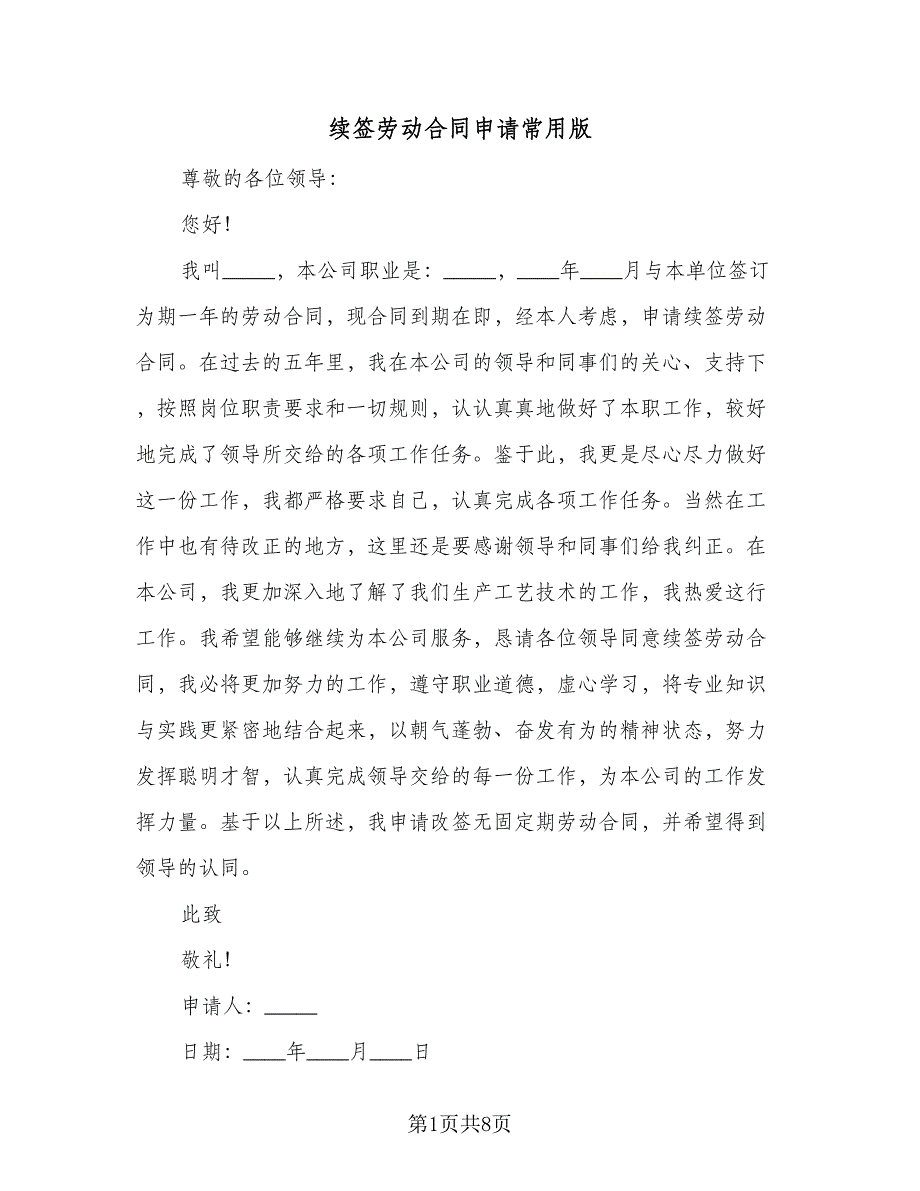 续签劳动合同申请常用版
尊敬的各位领导：
您好！
我叫_____，本公司职业是：_____，____年____月与本单位签订
为期一年的劳动合同，现合同到期在即，经本人考虑，申请续签劳动
合同。在过去的五年里，我在本公司的领导和同事们的关心、支持下
，按照岗位职责要求和一切规则，认认真真地做好了本职工作，较好
地完成了领导所交给的各项工作任务。鉴于此，我更是尽心尽力做好
这一份工作，我都严格要求自己，认真完成各项工作任务。当然在工
作中也有待改正的地方，这里还是要感谢领导和同事们给我纠正。在
本公司，我更加深入地了解了我们生产工艺技术的工作，我热爱这行
工作。我希望能够继续为本公司服务，恳请各位领导同意续签劳动合
同，我必将更加努力的工作，遵守职业道德，虚心学习，将专业知识
与实践更紧密地结合起来，以朝气蓬勃、奋发有为的精神状态，努力
发挥聪明才智，认真完成领导交给的每一份工作，为本公司的工作发
挥力量。基于以上所述，我申请改签无固定期劳动合同，并希望得到
领导的认同。
此致
敬礼！
申请人：_____
日期：____年____月____日
第1页共8页